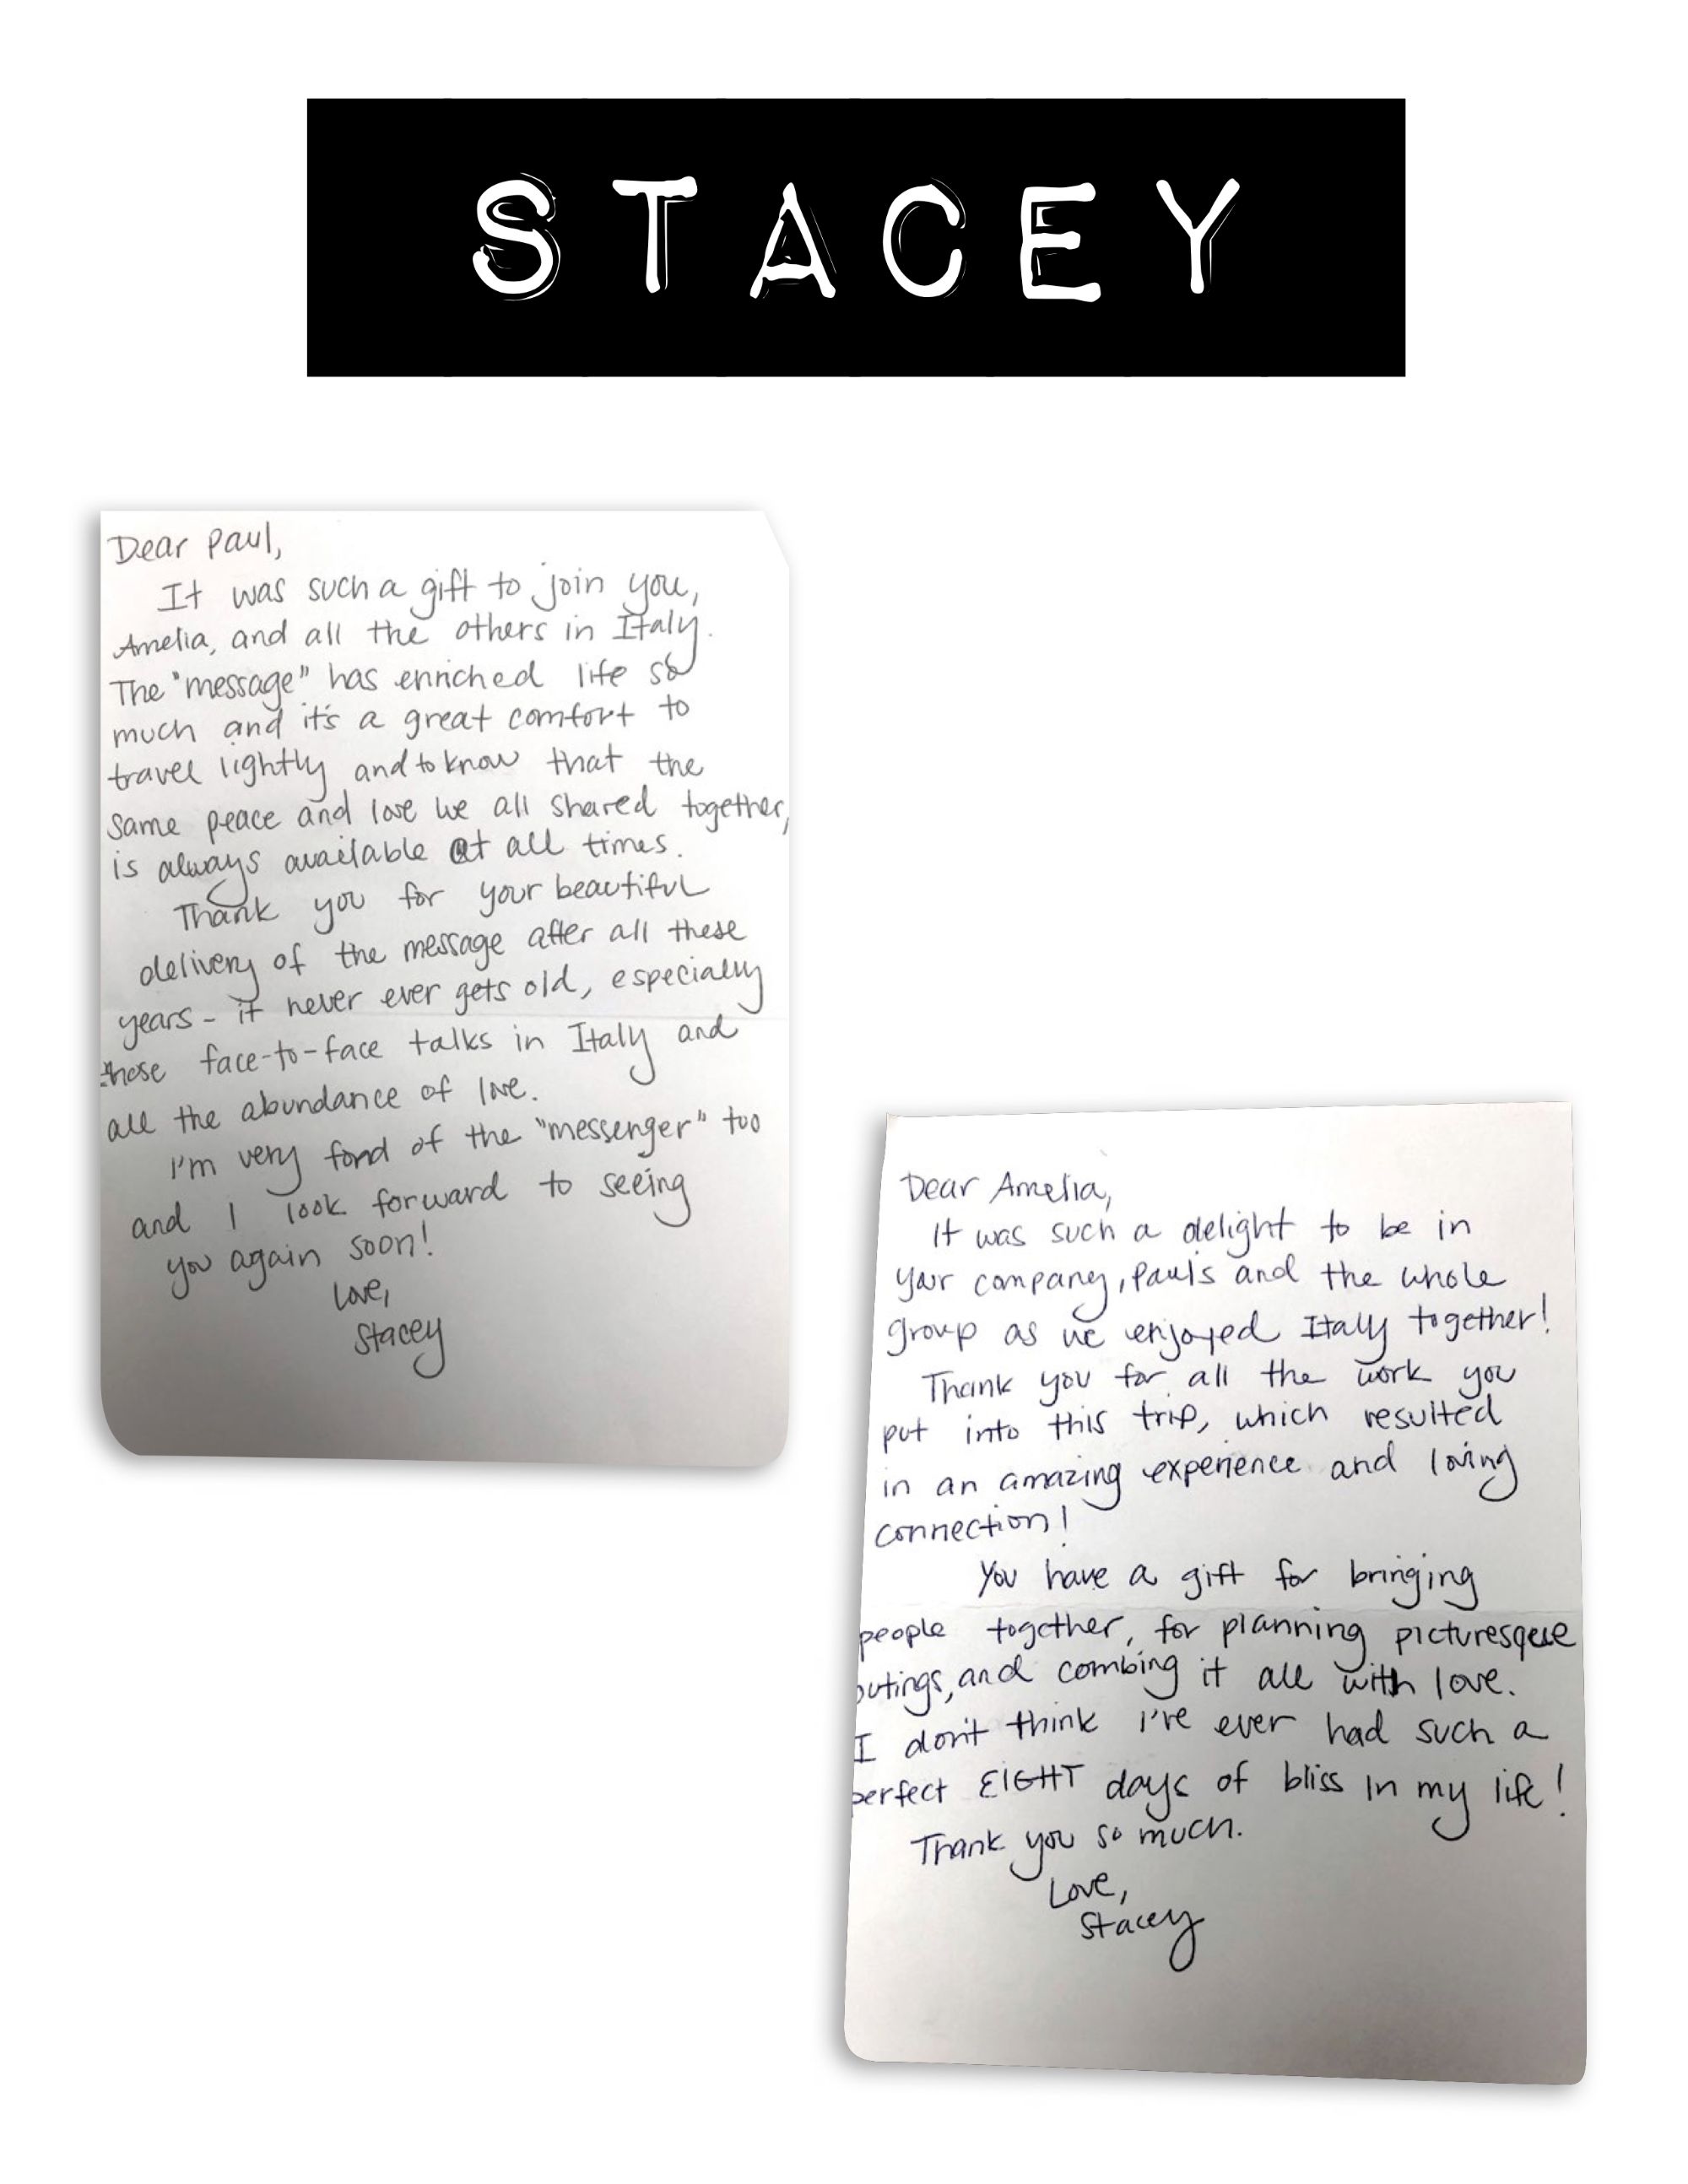 STACEY
Dear Paul,
It was such a gift to join you,
Amelia, and all the others in Italy.
The "message" has enriched life so
much and it's a great comfort to
travel lightly and to know that the
same peace and love we all shared together,
is always available at all times.
Thank you for your beautiful
delivery of the message after all these
years - it never ever gets old, especially
those face-to-face talks in Italy and
all the abundance of love.
I'm very fond of the "messenger" too
and I look forward to seeing
you again soon!
Love,
Stacey
Dear Amelia,
It was such a delight to be in
your company, Paul's and the whole
group as we enjoyed Italy together!
Thank you for all the work you
put into this trip, which resulted
in an amazing experience and loving
connection!
You have a gift for bringing
people together, for planning picturesque
outings, and combing it all with love.
I don't think I've ever had such a
perfect EIGHT days of bliss in my life!
Thank you so much.
Love,
Stacey